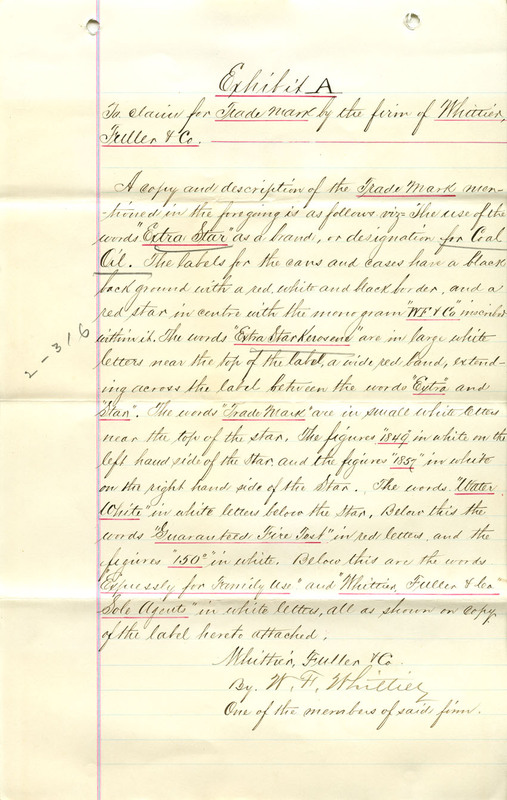 Exhibit A
To claim for Trade Mark by the firm of Whittier,
Fuller & Co.
A copy and description of the Trade Mark men-
-tioned in the foregoing is as follows viz= The use of the
words "Extra Star" as a brand, or designation for Coal
Oil. The labels for the cans and cases have a black
back ground with a red, white and black border, and a
red star in centre with the monogram "W.F. & Co" inscribed
within it. The words "Extra Star Kerosene" are in large white
letters near the top of the label, a wide red band, extend-
ing across the label between the words "Extra" and
"Star". The words "Trade Mark" are in small white letters
near the top of the star. The figures "1849" in white on the
left hand side of the Star and the figures "1857" in white
on the right hand side of the Star. The words "Water
White" in white letters below the Star, Below this the
words "Guaranteed Fire Test" in red letters, and the
figures "150°" in white. Below this are the words
"Expressly for Family Use" and "Whittier, Fuller & Co.
Sole Agents" in white letters, all as shown on copy
of the label hereto attached.
Whittier, Fuller & Co.
By. W. F. Whittier
One of the members of said firm.
2-316